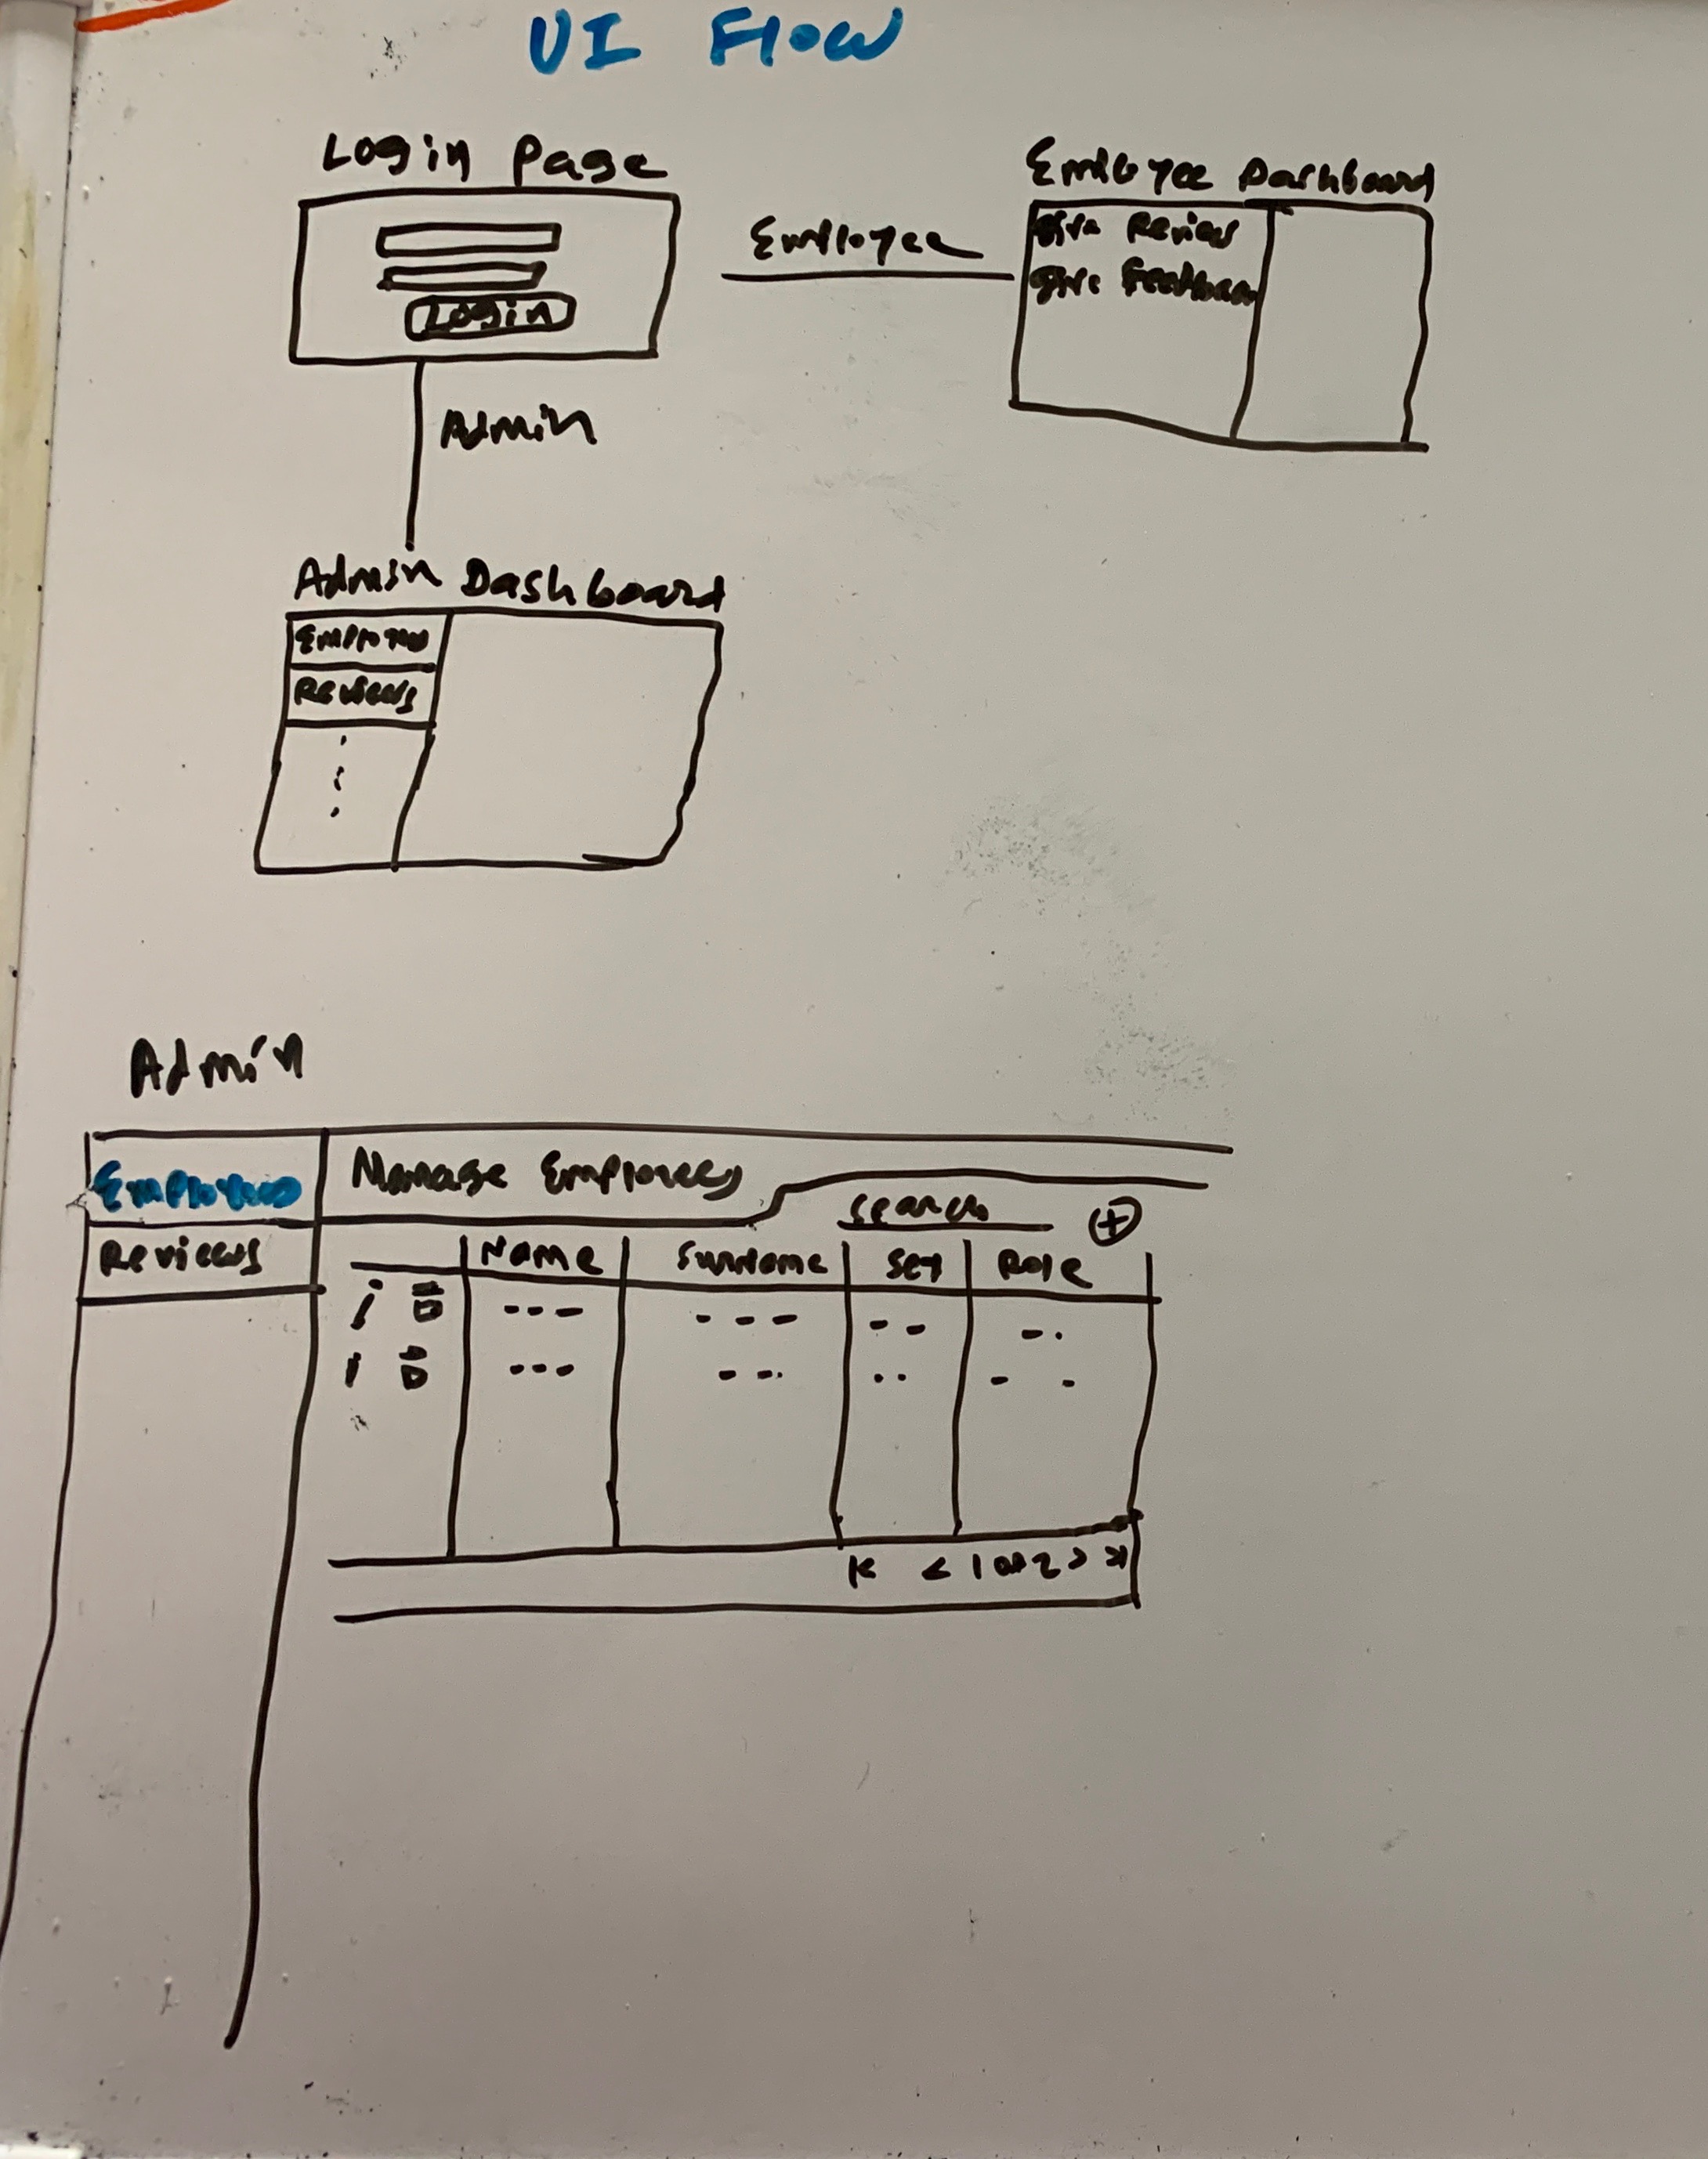 UI Flow
Login Page
Login
Employee
Employee Dashboard
Give Review
Give Feedback
Admin
Admin Dashboard
Employees
Reviews
Admin
Employees
Reviews
Manage Employees
search
+
Name Surname Sex Role
K < 1 of 2 > >|